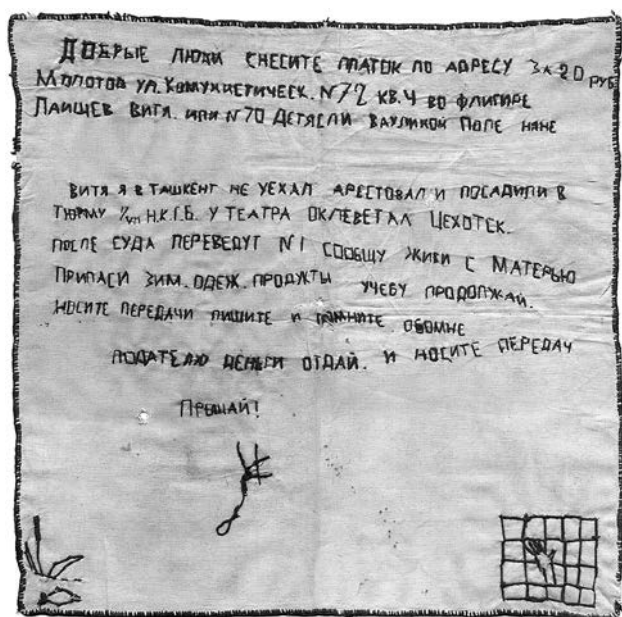 ДОБРЫЕ ЛЮДИ СНЕСИТЕ ПЛАТОК ПО АДРЕСУ ЗА 20 РУБ
МОЛОТОВ УЛ. КОМУНИСТИЧЕСК. №72 КВ. Ч ВО ФЛИГИРЕ
ЛАИЩЕВ ВИТЯ. ИЛИ №70 ДЕТЯСЛИ ВАУЛИНОЙ ПОЛЕ НЯНЕ
ВИТЯ Я В ТАШКЕНТ НЕ УЕХАЛ АРЕСТОВАЛ И ПОСАДИЛИ В
ТЮРМУ Н.К.Г.Б. У ТЕАТРА ОКЛЕВЕТАЛ ЦЕХОТЕК.
ПОСЛЕ СУДА ПЕРЕВЕДУТ №1 СООБЩУ ЖИВИ С МАТЕРЬЮ
ПРИПАСИ ЗИМ. ОДЕЖ. ПРОДУКТЫ УЧЕБУ ПРОДОЛЖАЙ.
НОСИТЕ ПЕРЕДАЧИ ПИШИТЕ И ПОМНИТЕ ОБОМНЕ
ПОДАТЕЛЮ ДЕНЬГИ ОТДАЙ. И НОСИТЕ ПЕРЕДАЧ
ПРОЩАЙ!